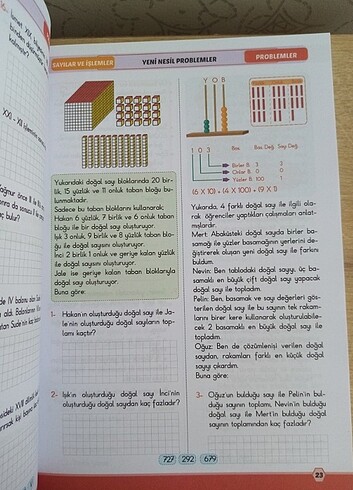 SAYILAR VE İŞLEMLER
YENİ NESİL PROBLEMLER
PROBLEMLER
Yukarıdaki doğal sayı bloklarında 20 bir-
lik, 15 yüzlük ve 11 onluk taban bloğu bu-
lunmaktadır.
Sadece bu taban bloklarını kullanarak;
Hakan 6 yüzlük, 7 birlik ve 6 onluk taban
bloğu ile bir doğal sayı oluşturuyor.
Işık 3 onluk, 9 birlik ve 8 yüzlük taban blo-
ğu ile doğal sayısını oluşturuyor.
İnci 2 birlik 1 onluk ve geriye kalan yüzlük
ile doğal sayısını oluşturuyor.
Jale ise geriye kalan taban bloklarıyla
doğal sayı oluşturuyor.
Buna göre;
1- Hakan'ın oluşturduğu doğal sayı ile Ja-
le'nin oluşturduğu doğal sayıların top-
lamı kaçtır?
2- Işık'ın oluşturduğu doğal sayı İnci'nin
oluşturduğu doğal sayıdan kaç fazladır?
Y O B
1 0 3
Bas. Bas. Değ. Sayı Değ.
Birler B. 3 2
Onlar B. 0 0
Yüzler B. 100 1
(6 X 10) + (4 X 100) + (9 X 1)
Yukarıda, 4 farklı doğal sayı ile ilgili ola-
rak öğrenciler yaptıkları çalışmaları anlat-
mışlardır.
Mert: Abaküsteki doğal sayıda birler ba-
samağı ile yüzler basamağının yerlerini de-
ğiştirerek oluşan yeni doğal sayı ile farkını
buldum.
Nevin: Ben tablodaki doğal sayıyı, üç ba-
samaklı en büyük çift doğal sayı yapacak
doğal sayı ile topladım.
Pelin: Ben, basamak ve sayı değerleri göste-
rilen doğal sayı ile bu sayının tek rakam-
larını birer kere kullanarak oluşturulabile-
cek 2 basamaklı en büyük doğal sayı ile
topladım.
Oğuz: Ben de çözümlenişi verilen doğal
sayıdan, rakamları farklı en küçük doğal
sayıyı çıkardım.
Buna göre;
3- Oğuz'un bulduğu sayı ile Pelin'in bul-
duğu sayının toplamı, Nevin'in bulduğu
doğal sayı ile Mert'in bulduğu doğal
sayının toplamından kaç fazladır?
727 292 679
23